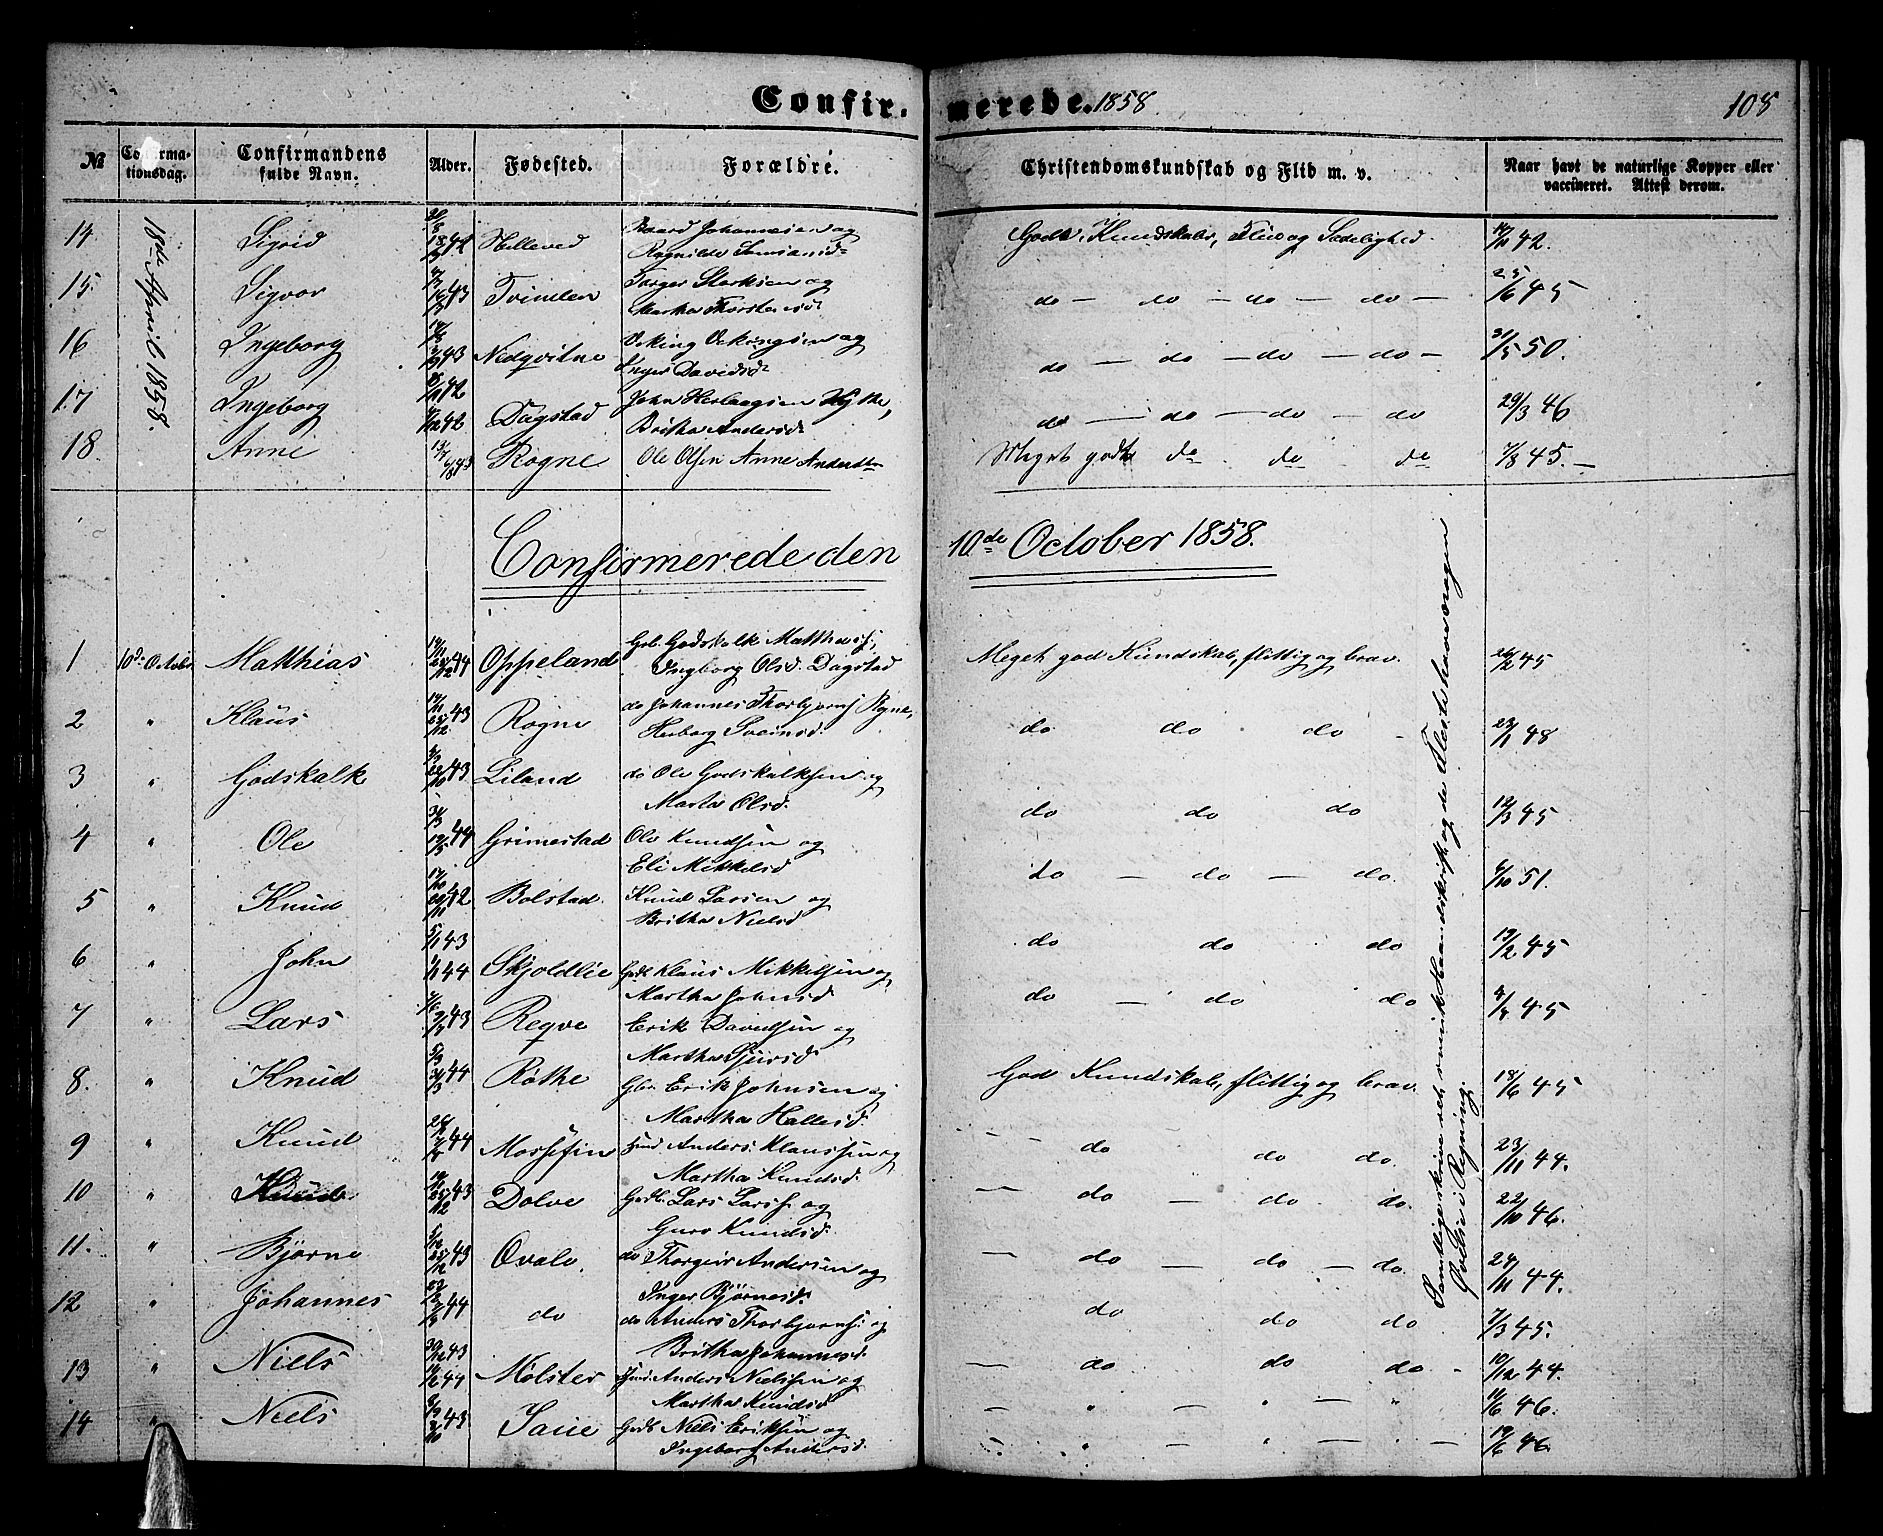 Confirmerede. 1858. 108
№ Confirmationsdag. Confirmandens fulde Navn. Alder. Fødested. Forældre. Christendomskundskab og Flid m. v. Naar havt de naturlige Kopper eller vaccineret. Attest derom.
18de April 1858.
14 Sigrid 42 Helleved Baard Johannesen og
Godt Kundskabs, Flid og Sædelighed. 42.
15. Sigvor 43 Tvinden Torger Størksen og
Martha Thorstensd. do — do — do — do — 25/6 45
16 Ingeborg 43 Nedqvitne Veking Vekingsen og
Inger Davidsd. do — do — do — do — 31/5 50.
17 Ingeborg 42 Dagstad John Herlaugsen
Britha Andersd. do — do — do — do 29/3 46
18. Anne 43 Rogne Ole Olsen Anne Andersdtr Meget godt do do do 7/8 45. —
Confirmerede den 10de October 1858.
1 10d. Octobr. Matthias 44 Oppeland Gbr. Godskalk Matthiasf.,
Ingborg Olsd. Dagstad Meget god Kundskab, flittig og brav. 26/2 45
2 " Klaus 43 Rogne do Johannes Thorbjørnsf. Rogne,
Herborg Sveinsd. do do do 23/1 48
3 " Godskalk 43 Liland do Ole Godskalksen og
Martha Olsd. do do do 12/3 45
4 " Ole 44 Grimestad Ole Knudsen og
Eli Mikkelsd do — do — do. 6/10 51.
5 " Knud 42 Bolstad. Knud Larsen og
Britha Nielsd do do do 19/2 45
6 " John 5/1 43 1/1 44 Skjoldlie Gbr. Klaus Mikkelsen og
Martha Johnsd. do — do do 45
7 " Lars 43 Reqve Erik Davidsen og
Martha Sjursd.
8. " Knud 44 Röthe Gbr. Erik Johnsen og
Martha Hallesd. God Kundskab, flittig og brav 18/6 45
9 " Knud 44 Mossefin Huusm. Anders Klaussen og
Martha Knudsd. — do do do. 23/11 44.
10 " Knud 43 Dolve Gbr. Lars Larsf. og
Guro Knudsd. — do — do do. 22/10 46.
11. " Bjørne 43 Qvale. do Thorgeir Andersen og
Inger Bjørnesd. — do — do — do. 24/11 44.
12 " Johannes 44 do do Anders Thorbjørnsf. og
Britha Johannesd. do do do 7/3 45.
13 " Niels 43 44 Mölster Huusm. Anders Nielssen og
Martha Knudsd — do do do — 10/12 44.
14 " Niels 43 Saue Gbr. Niels Eriksen og
Ingeborg Andersd. — " — " — " 11/6 46.
— " — " — — 19/6 46.
Samtlige skrive ret smuk Haandskrift og de Fleste have nogen
Øvelse i Regning.